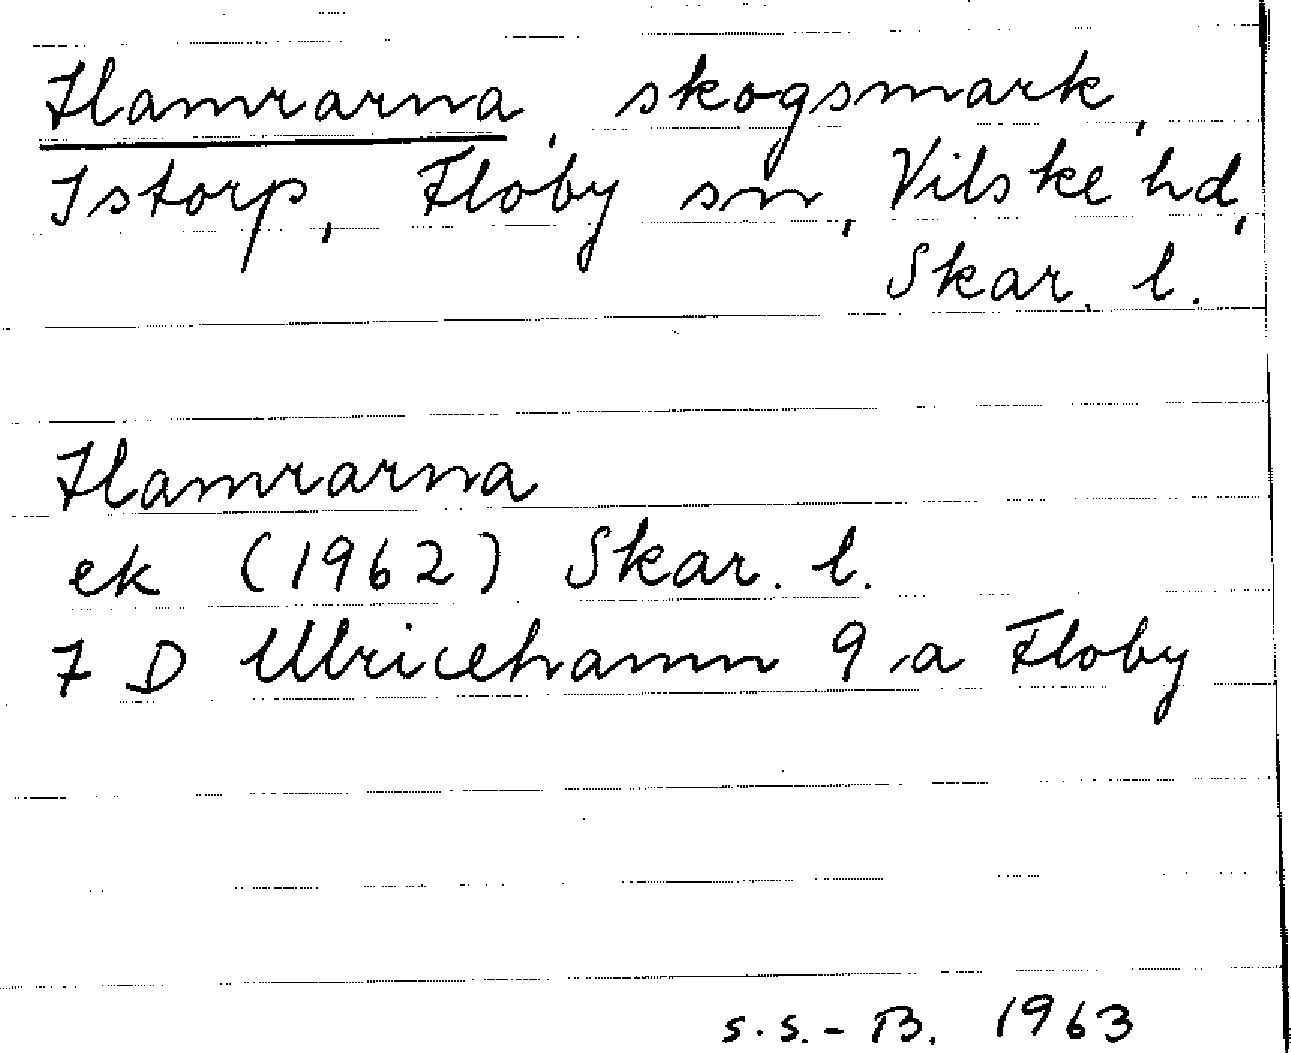 Hamrarna, skogsmark,
Istorp, Floby sn, Vilske hd,
Skar. l.
Hamrarna
ek (1962) Skar. l.
7 D Ulricehamn 9 a Floby
s.s.-B. 1963